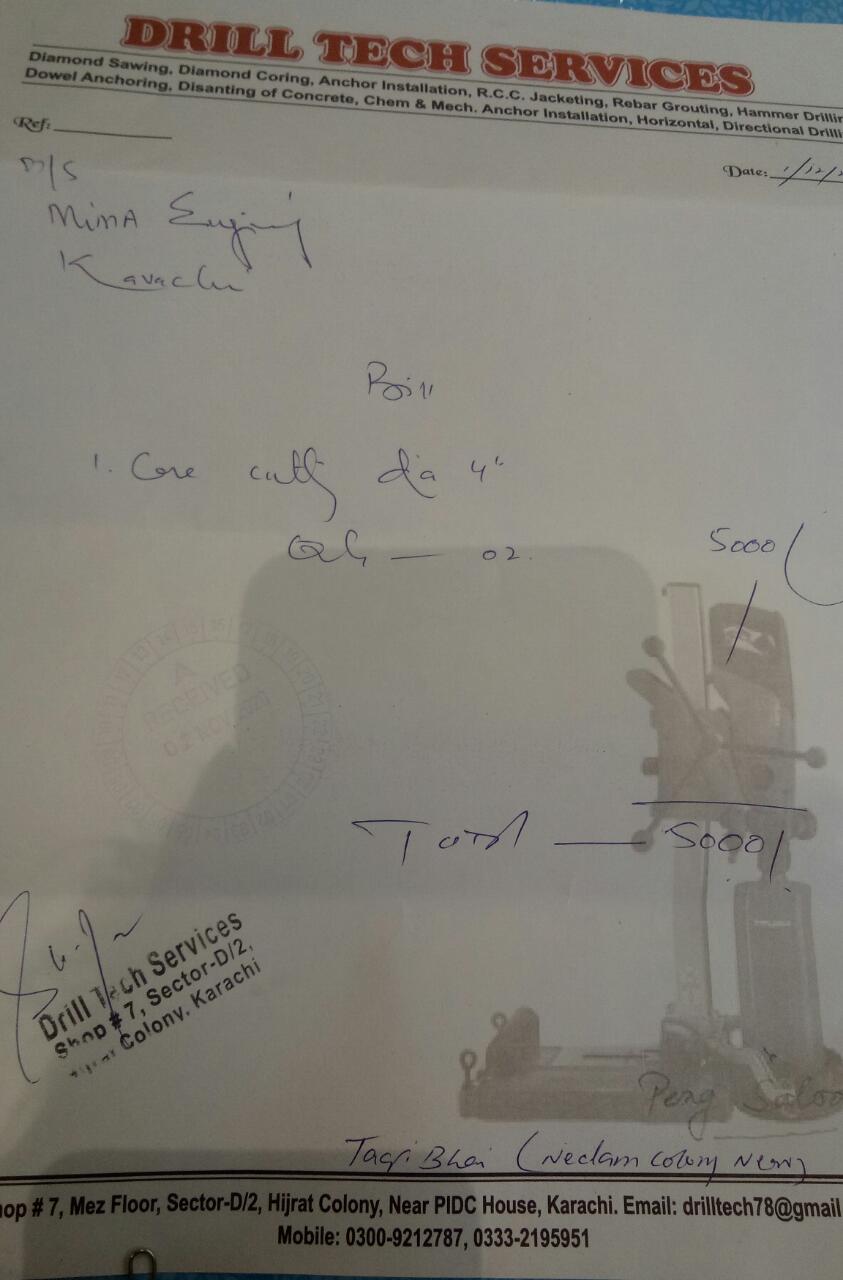 DRILL TECH SERVICES
Diamond Sawing, Diamond Coring, Anchor Installation, R.C.C. Jacketing, Rebar Grouting, Hammer Drillin
Dowel Anchoring, Disanting of Concrete, Chem & Mech. Anchor Installation, Horizontal, Directional Drilli
Ref:
Date: 1/12/2
M/S
MIMA
Karachi
Bill
1. Core cutting dia 4"
Qty — 02.
5000/
RECEIVED
02 NOV 2020
Total — 5000/.
Drill Tech Services
Shop # 7, Sector-D/2,
Colony. Karachi
Peng Saloo
Taqi Bhai (Neelam Colony
op # 7, Mez Floor, Sector-D/2, Hijrat Colony, Near PIDC House, Karachi. Email: drilltech78@gmail
Mobile: 0300-9212787, 0333-2195951